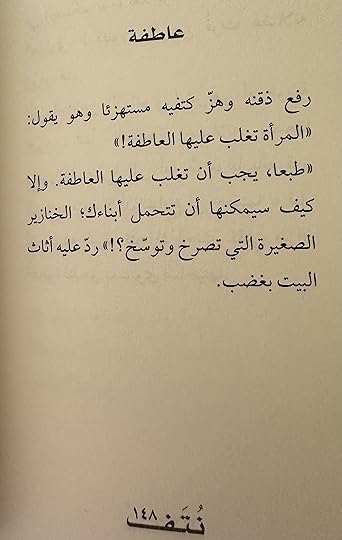 عاطفة
رفع ذقنه وهزّ كتفيه مستهزئا وهو يقول:
«المرأة تغلب عليها العاطفة!»
«طبعا، يجب أن تغلب عليها العاطفة. وإلا
كيف سيمكنها أن تتحمل أبناءك؛ الخنازير
الصغيرة التي تصرخ وتوسّخ؟!» ردّ عليه أثاث
البيت بغضب.
١٤٨
نُتَف